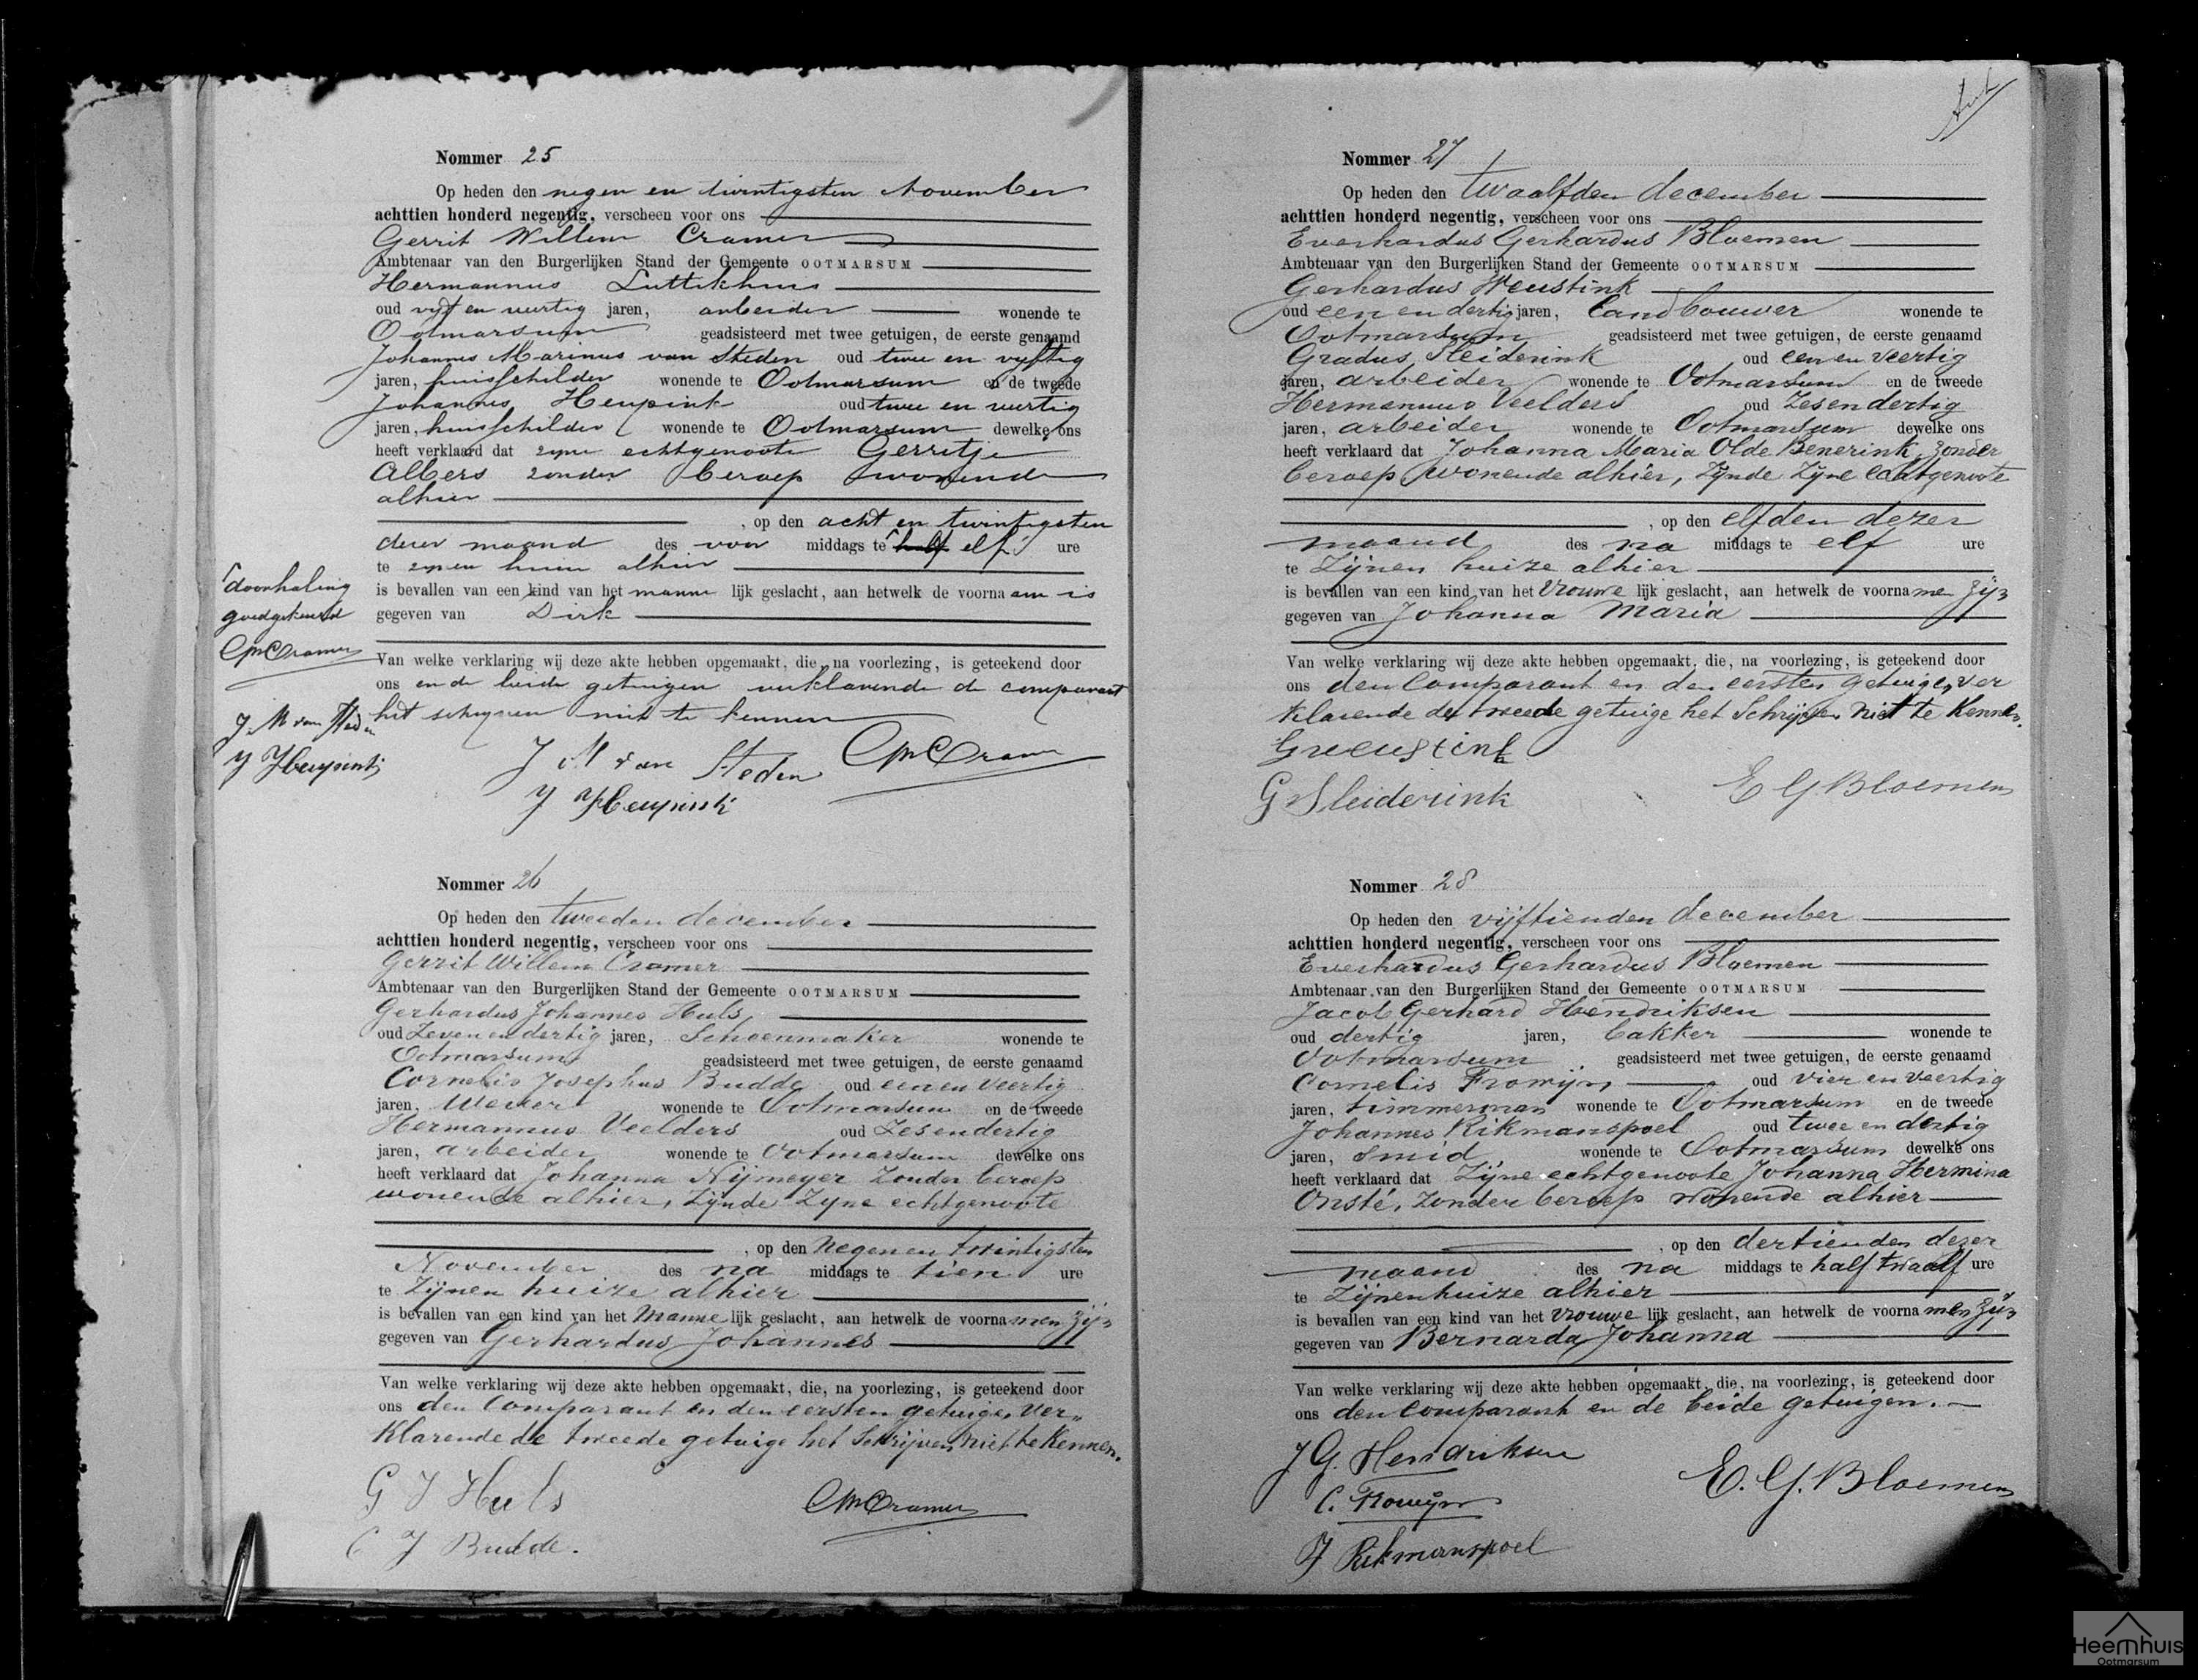 Nommer 25
Op heden den negen en twintigsten November
achttien honderd negentig, verscheen voor ons
Gerrit Willem Cramer
Ambtenaar van den Burgerlijken Stand der Gemeente OOTMARSUM
Hermannus Luttikhuis
oud vijf en veertig jaren, arbeider wonende te
Ootmarsum geadsisteerd met twee getuigen, de eerste genaamd
Johannes Marinus van Steden oud twee en vyftig
jaren, huisschilder wonende te Ootmarsum en de tweede
Johannes Heupink oud twee en veertig
jaren, huisschilder wonende te Ootmarsum dewelke ons
heeft verklaard dat zyne echtgenoote Gerritje
Albers zonder beroep wonende
alhier
, op den acht en twintigsten
dezer maand des voor middags te half elf ure
te zynen huize alhier
is bevallen van een kind van het manne lijk geslacht, aan hetwelk de voorna am is
gegeven van Dirk
Van welke verklaring wij deze akte hebben opgemaakt, die, na voorlezing, is geteekend door
ons en de beide getuigen verklarende de comparant
het schryven niet te kennen
J M van Steden GWCramer
J Heupink
doorhaling
goedgekeurd
GWCramer
J. M van Steden
J Heupink
Nommer 26
Op heden den tweeden december
achttien honderd negentig, verscheen voor ons
Gerrit Willem Cramer
Ambtenaar van den Burgerlijken Stand der Gemeente OOTMARSUM
Gerhardus Johannes Huls
oud Zeven en dertig jaren, Schoenmaker wonende te
Ootmarsum geadsisteerd met twee getuigen, de eerste genaamd
Cornelis Josephus Budde oud een en veertig
jaren, Wever wonende te Ootmarsum en de tweede
Hermannus Veelders oud Zesendertig
jaren, arbeider wonende te Ootmarsum dewelke ons
heeft verklaard dat Johanna Nijmeyer Zonder beroep
wonende alhier, Zijnde Zyne echtgenoote
, op den negen en twintigsten
November des na middags te tien ure
te Zijnen huize alhier
is bevallen van een kind van het Manne lijk geslacht, aan hetwelk de voorna men Zijn
gegeven van Gerhardus Johannes
Van welke verklaring wij deze akte hebben opgemaakt, die, na voorlezing, is geteekend door
ons den Comparant en den eersten getuige, Ver„
Klarende de tweede getuige het Schrijven niet te Kennen.
G J Huls GWCramer
C J Budde.
Nommer 27
Op heden den twaalfden december
achttien honderd negentig, verscheen voor ons
Everhardus Gerhardus Bloemen
Ambtenaar van den Burgerlijken Stand der Gemeente OOTMARSUM
Gerhardus Weustink
oud een en dertig jaren, landbouwer wonende te
Ootmarsum geadsisteerd met twee getuigen, de eerste genaamd
Gradus Sleiderink oud een en veertig
jaren, arbeider wonende te Ootmarsum en de tweede
Hermannus Veelders oud Zesendertig
jaren, arbeider wonende te Ootmarsum dewelke ons
heeft verklaard dat Johanna Maria Olde Benerink, Zonder
beroep wonende alhier, Zijnde Zyne echtgenoote
, op den elfden dezer
maand des na middags te elf ure
te Zijnen huize alhier
is bevallen van een kind van het Vrouwe lijk geslacht, aan hetwelk de voorna men Zijn
gegeven van Johanna Maria
Van welke verklaring wij deze akte hebben opgemaakt, die, na voorlezing, is geteekend door
ons den Comparant en den eersten getuige, ver
Klarende de tweede getuige het Schrijven niet te Kennen.
GWeustink
G Sleiderink E G Bloemen
Nommer 28
Op heden den vijftienden december
achttien honderd negentig, verscheen voor ons
Everhardus Gerhardus Bloemen
Ambtenaar van den Burgerlijken Stand der Gemeente OOTMARSUM
Jacob Gerhard Hendriksen
oud dertig jaren, bakker wonende te
Ootmarsum geadsisteerd met twee getuigen, de eerste genaamd
Cornelis Frowijn oud vier en veertig
jaren, timmerman wonende te Ootmarsum en de tweede
Johannes Rikmanspoel oud twee en dertig
jaren, Smid, wonende te Ootmarsum dewelke ons
heeft verklaard dat Zijne echtgenoote Johanna Hermina
Onsté, Zonder beroep wonende alhier
, op den dertienden dezer
maand des na middags te half twaalf ure
te Zijnen huize alhier
is bevallen van een kind van het Vrouwe lijk geslacht, aan hetwelk de voorna men Zijn
gegeven van Bernarda Johanna
Van welke verklaring wij deze akte hebben opgemaakt, die, na voorlezing, is geteekend door
ons den Comparant en de beide getuigen.
J G. Hendriksen
C. Frowijn E. G. Bloemen
J Rikmanspoel
Heemhuis
Ootmarsum